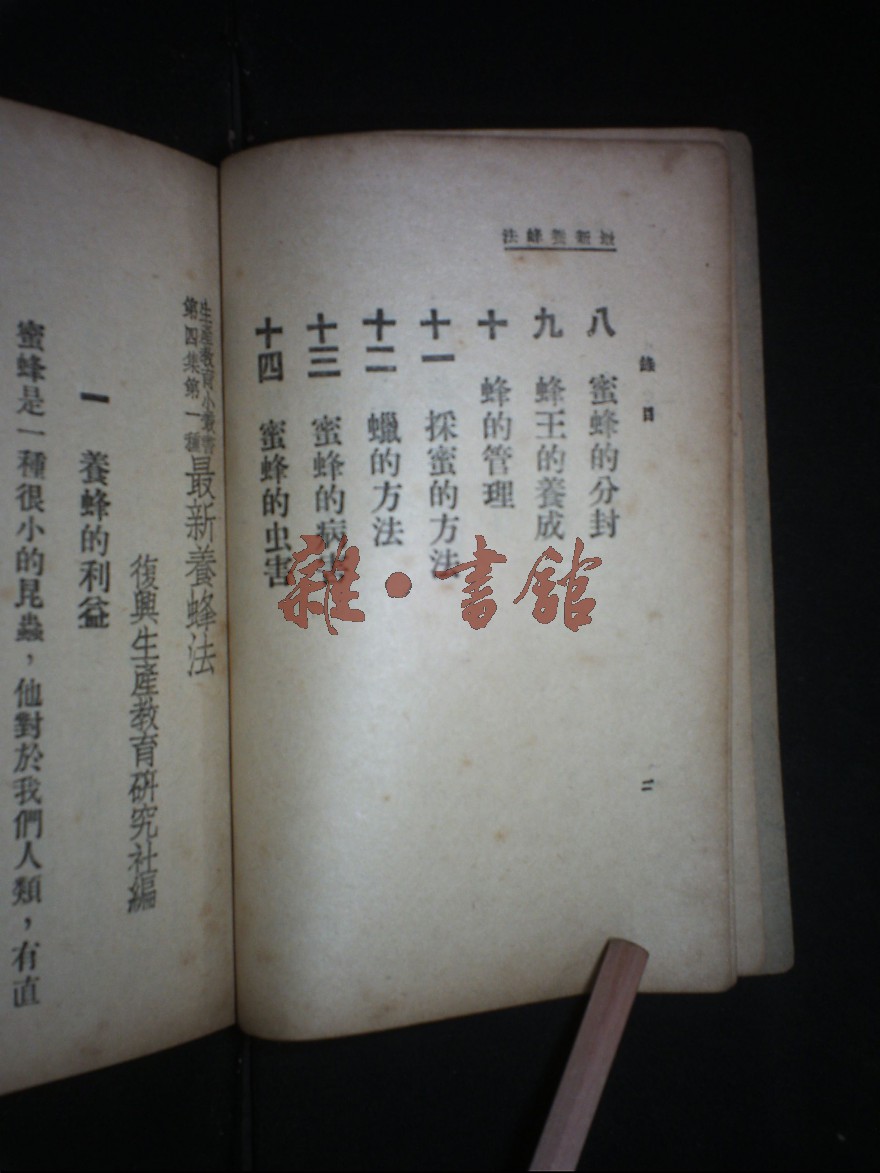 最新養蜂法
目錄
八 蜜蜂的分封
九 蜂王的養成
十 蜂的管理
十一 採蜜的方法
十二 蠟的方法
十三 蜜蜂的病害
十四 蜜蜂的虫害
二
生產教育小叢書
第四集第一種
最新養蜂法
復興生產教育研究社編
一 養蜂的利益
蜜蜂是一種很小的昆蟲，他對於我們人類，有直
雜·書館